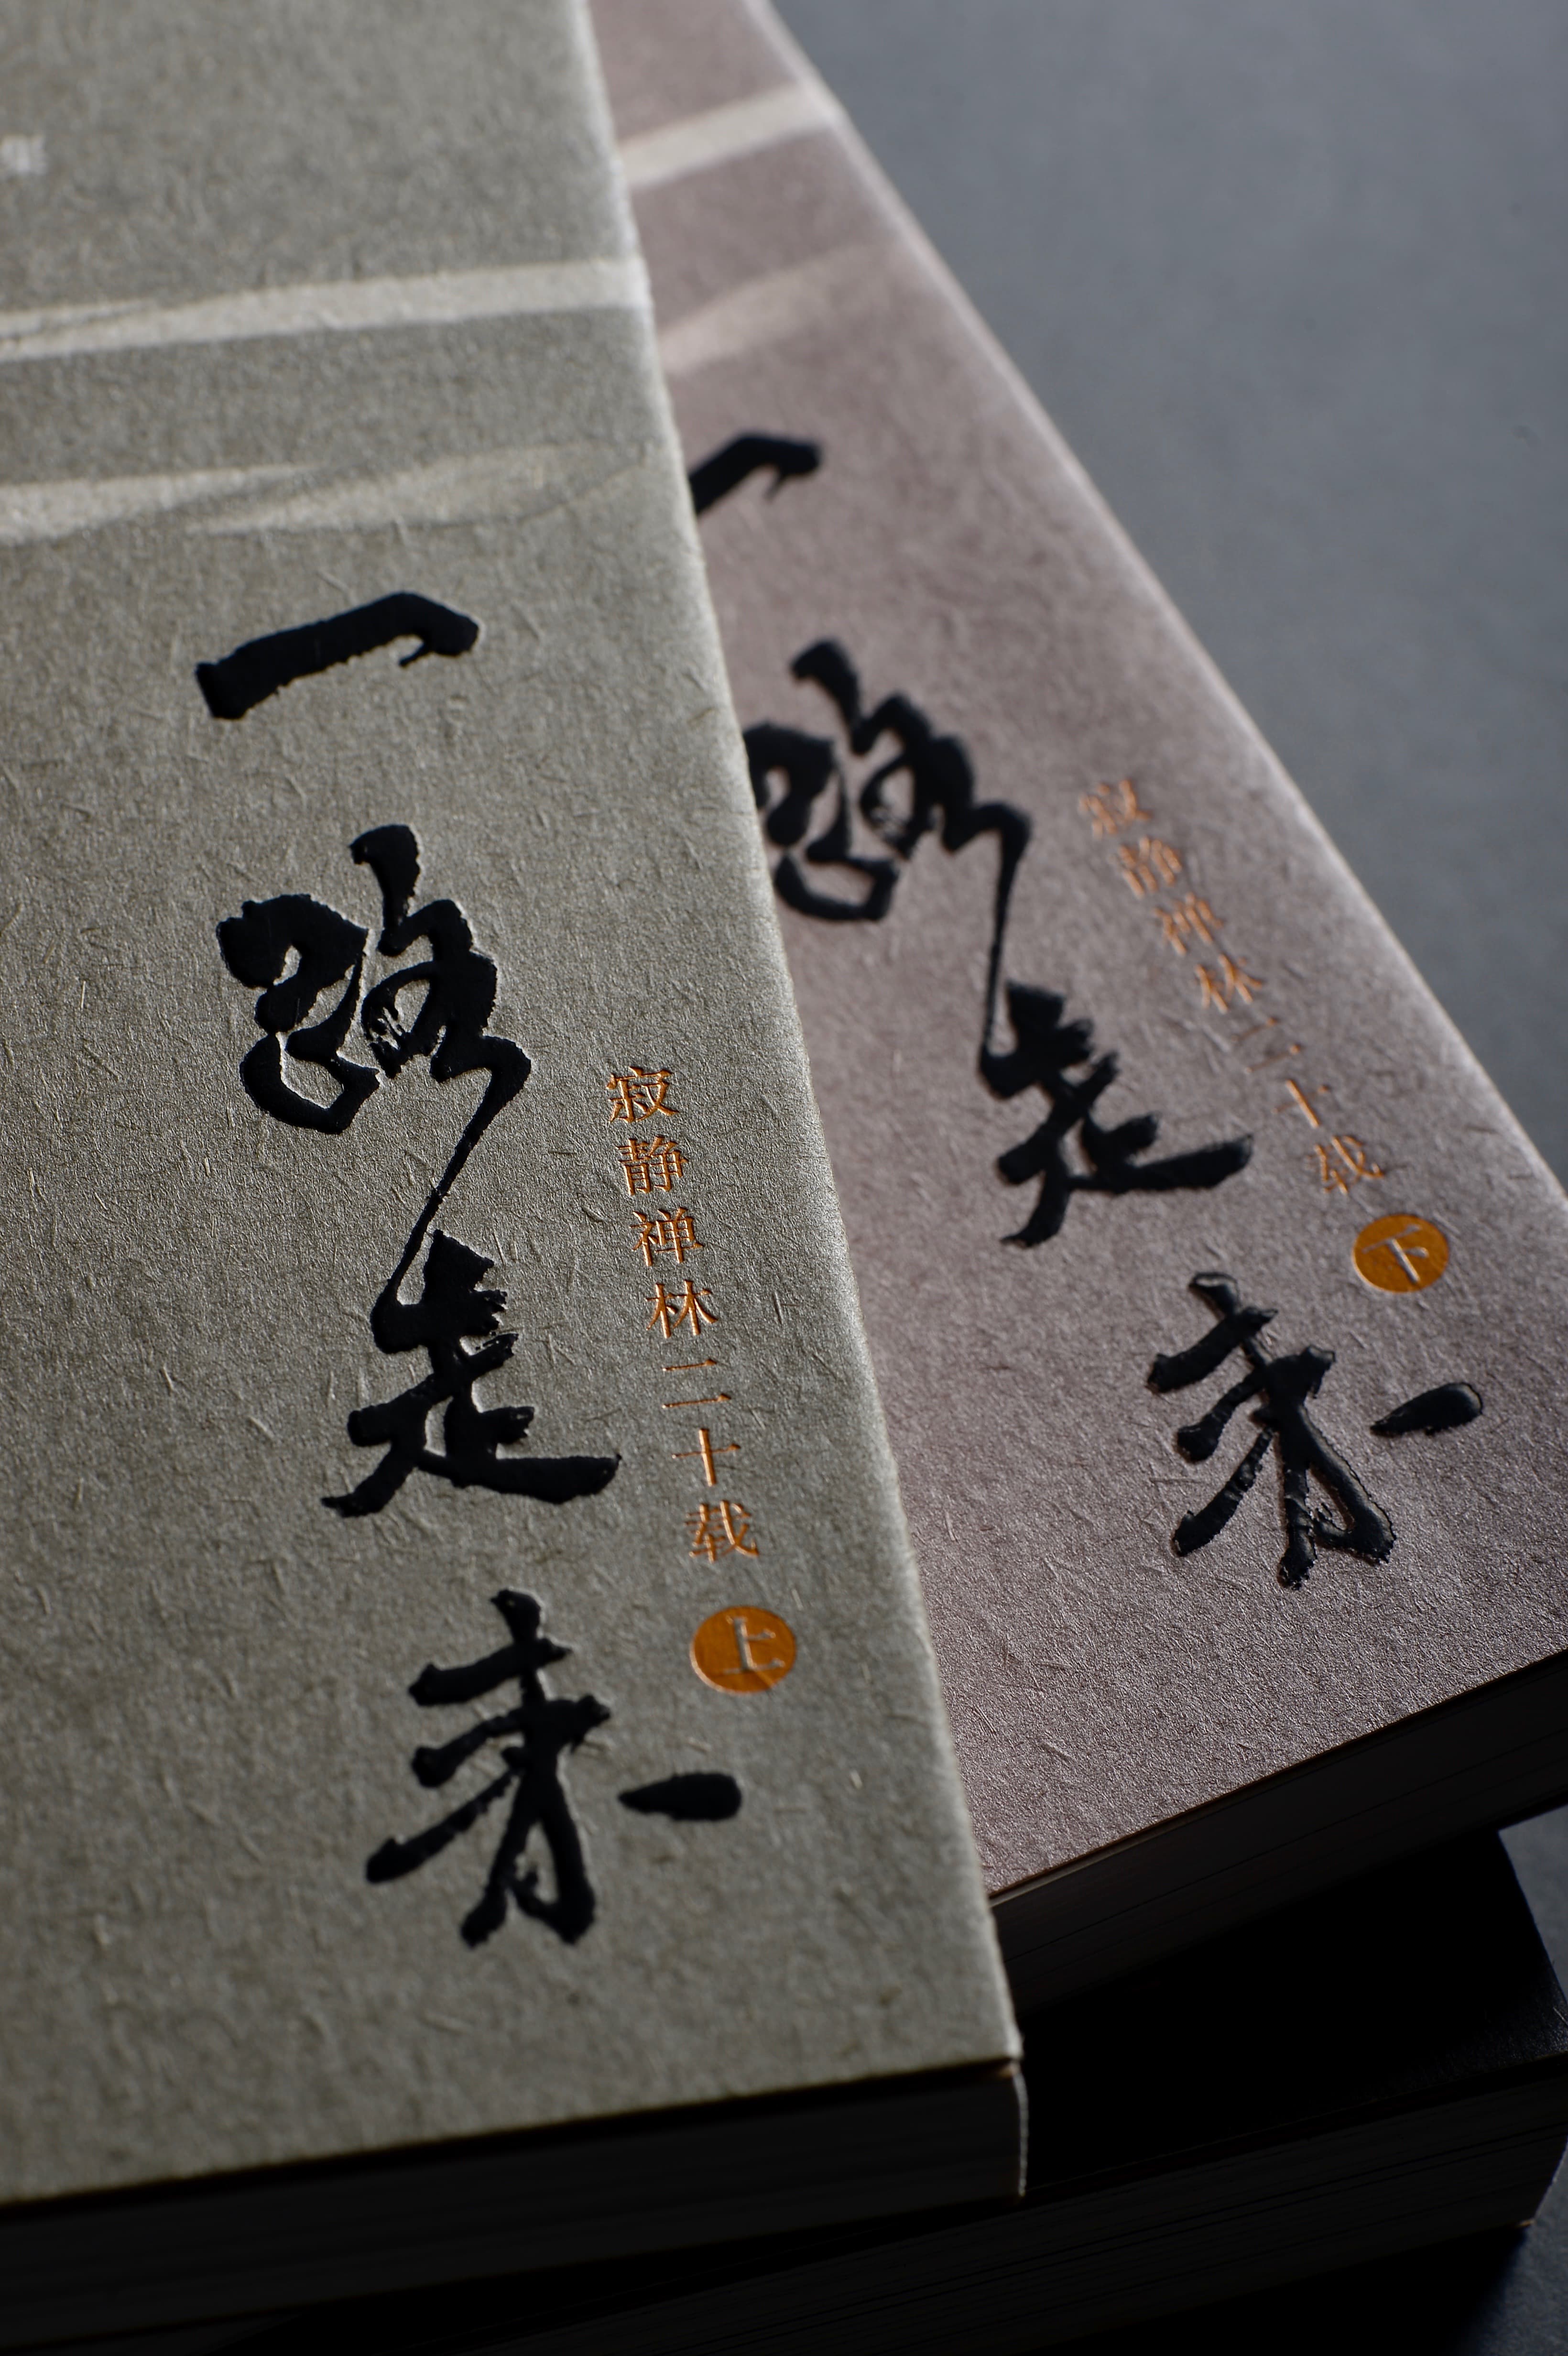 一路走来
寂静禅林二十载
上
一路走来
寂静禅林二十载
下